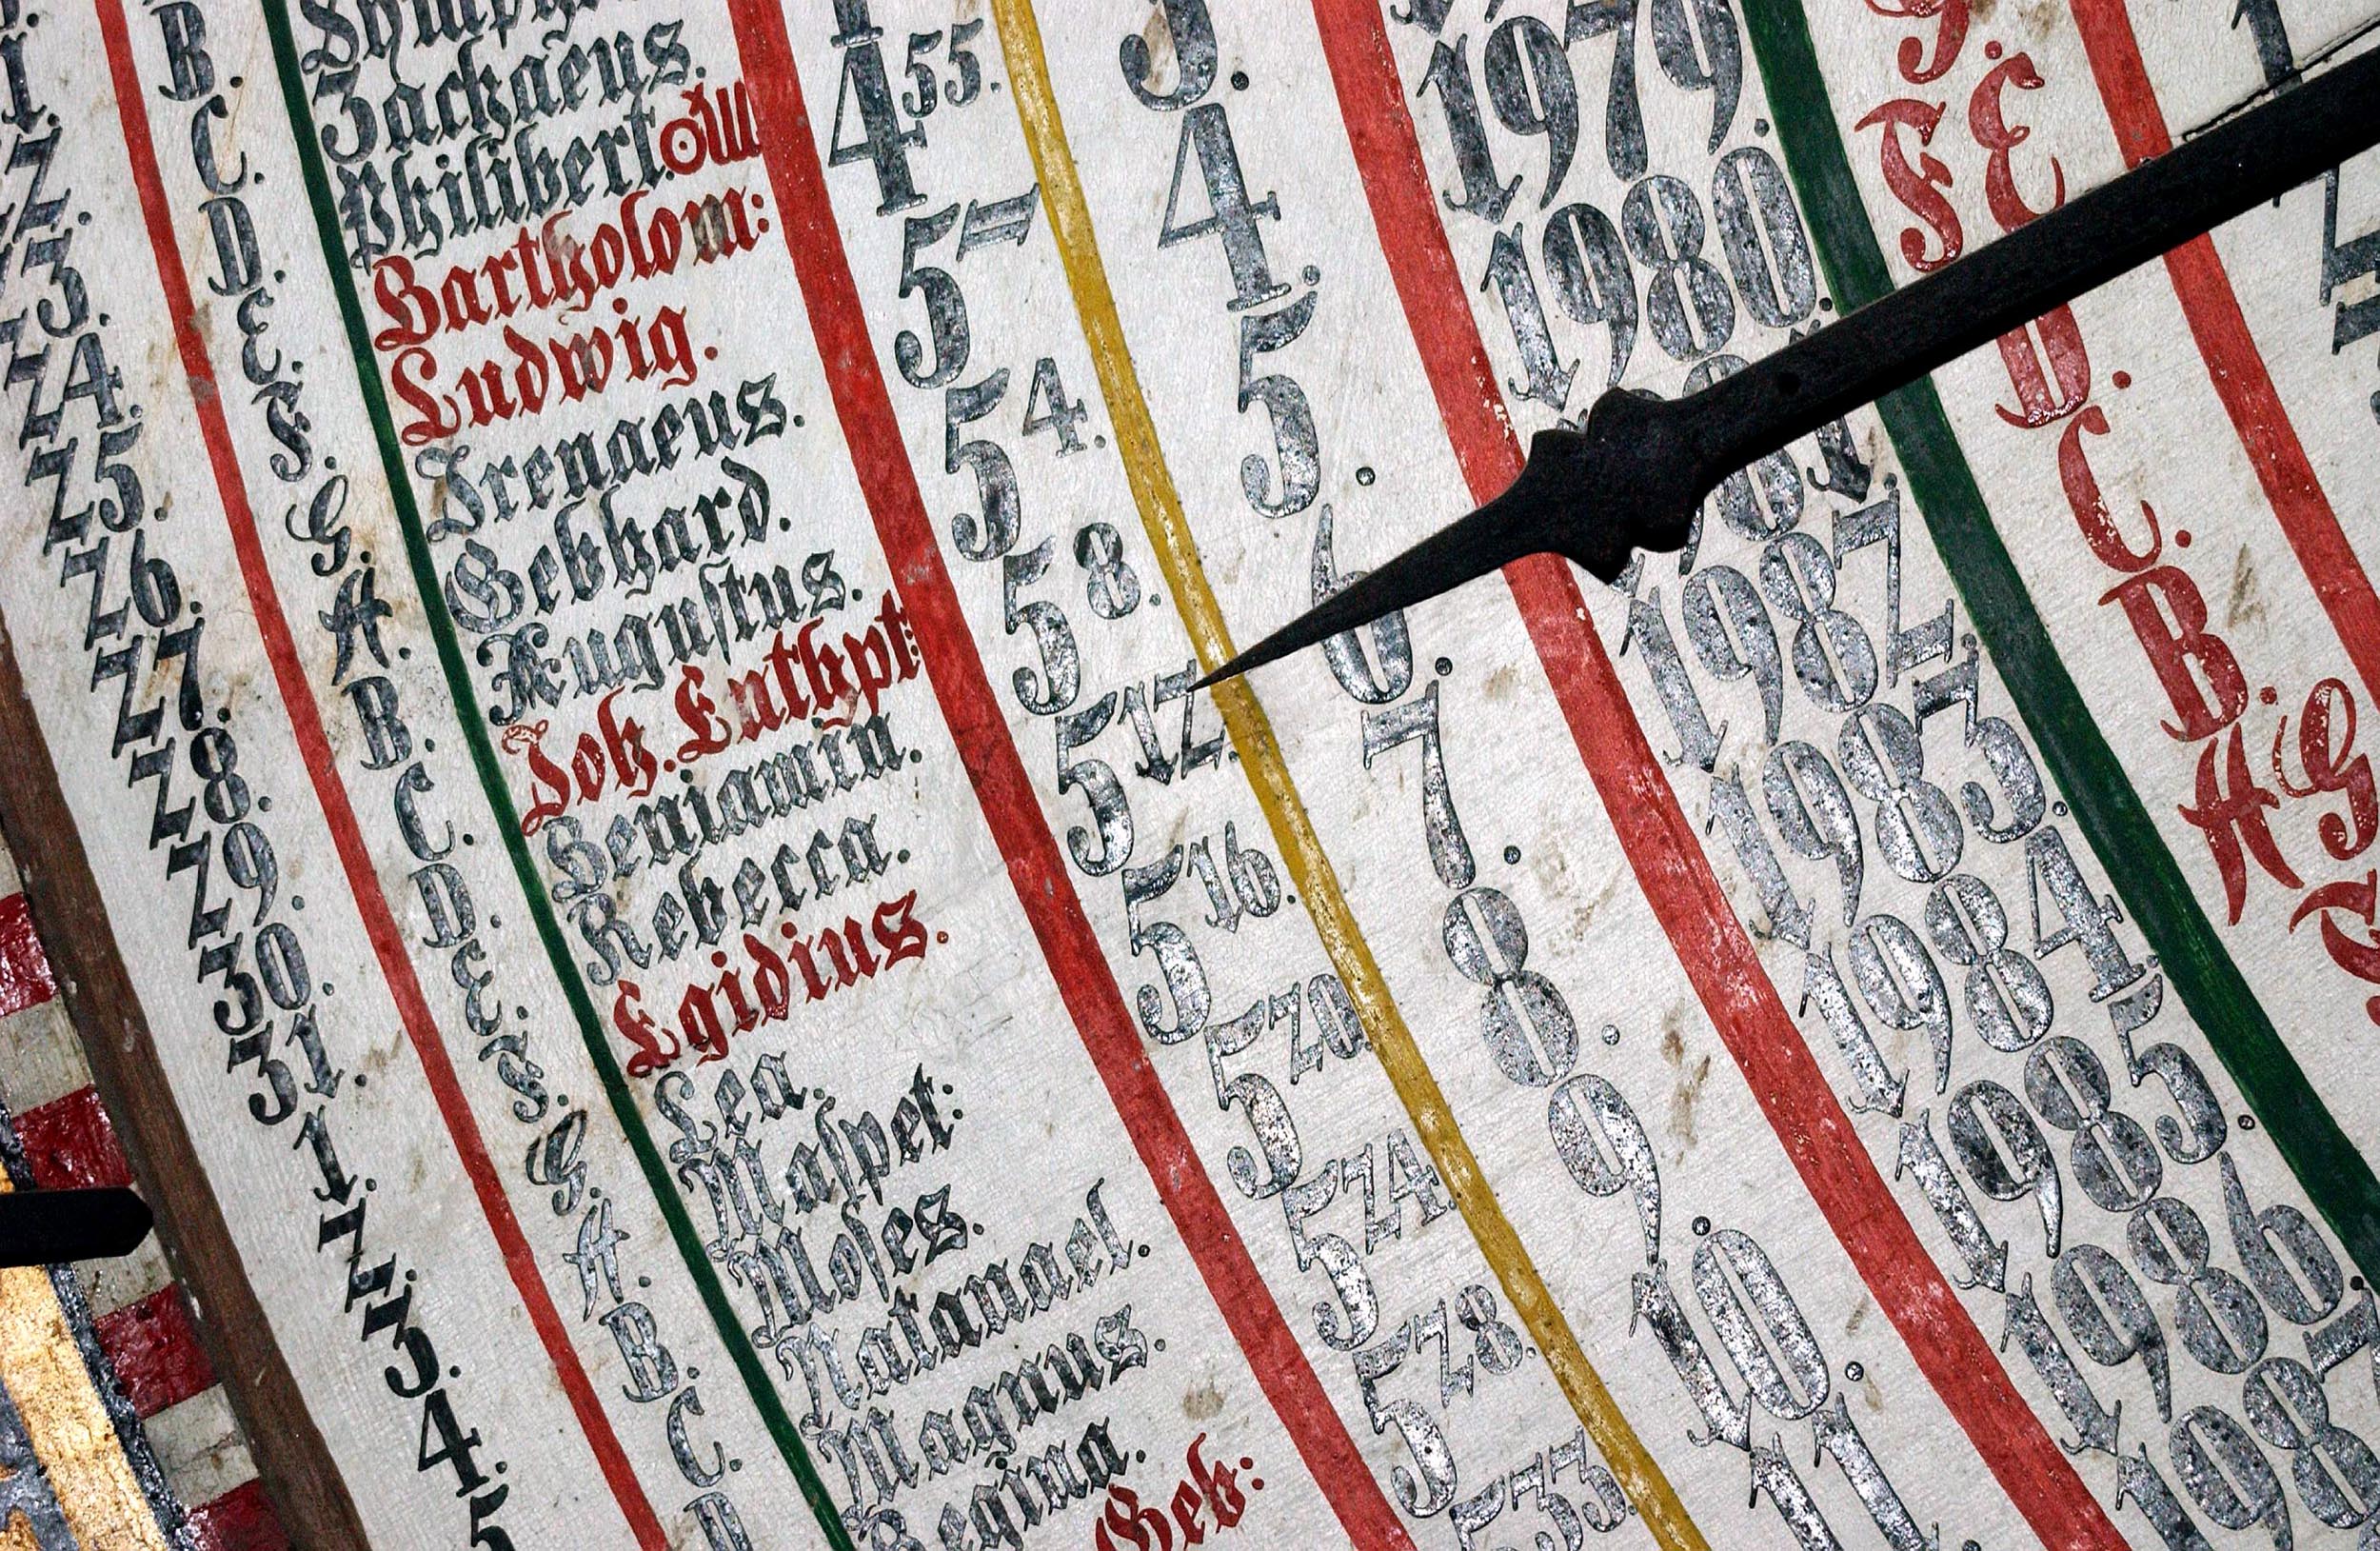 1.
22.
23.
24.
25.
26.
27.
28.
29.
30.
31.
1.
2.
3.
4.
5
B.
C.
D.
E.
F.
G.
A.
B.
C.
D.
E.
F.
G.
A.
B.
C.
D
Zachaeus.
Philibert.
Bartholom:
Ludwig.
Irenaeus.
Gebhard.
Augustus.
Joh. Enthpt:
Beniamin.
Rebecca.
Egidius.
Lea.
Maspet:
Moses.
Natanael.
Magnus.
Regina.
Geb:
4 55.
5
5 4.
5 8.
5 12.
5 16.
5 20.
5 24.
5 28.
5 33.
3.
4.
5.
6.
7.
8.
9.
10.
11.
1979.
1980.
1982.
1983.
1984.
1985.
1986.
1987
G.
F E
D.
C.
B.
A G
1